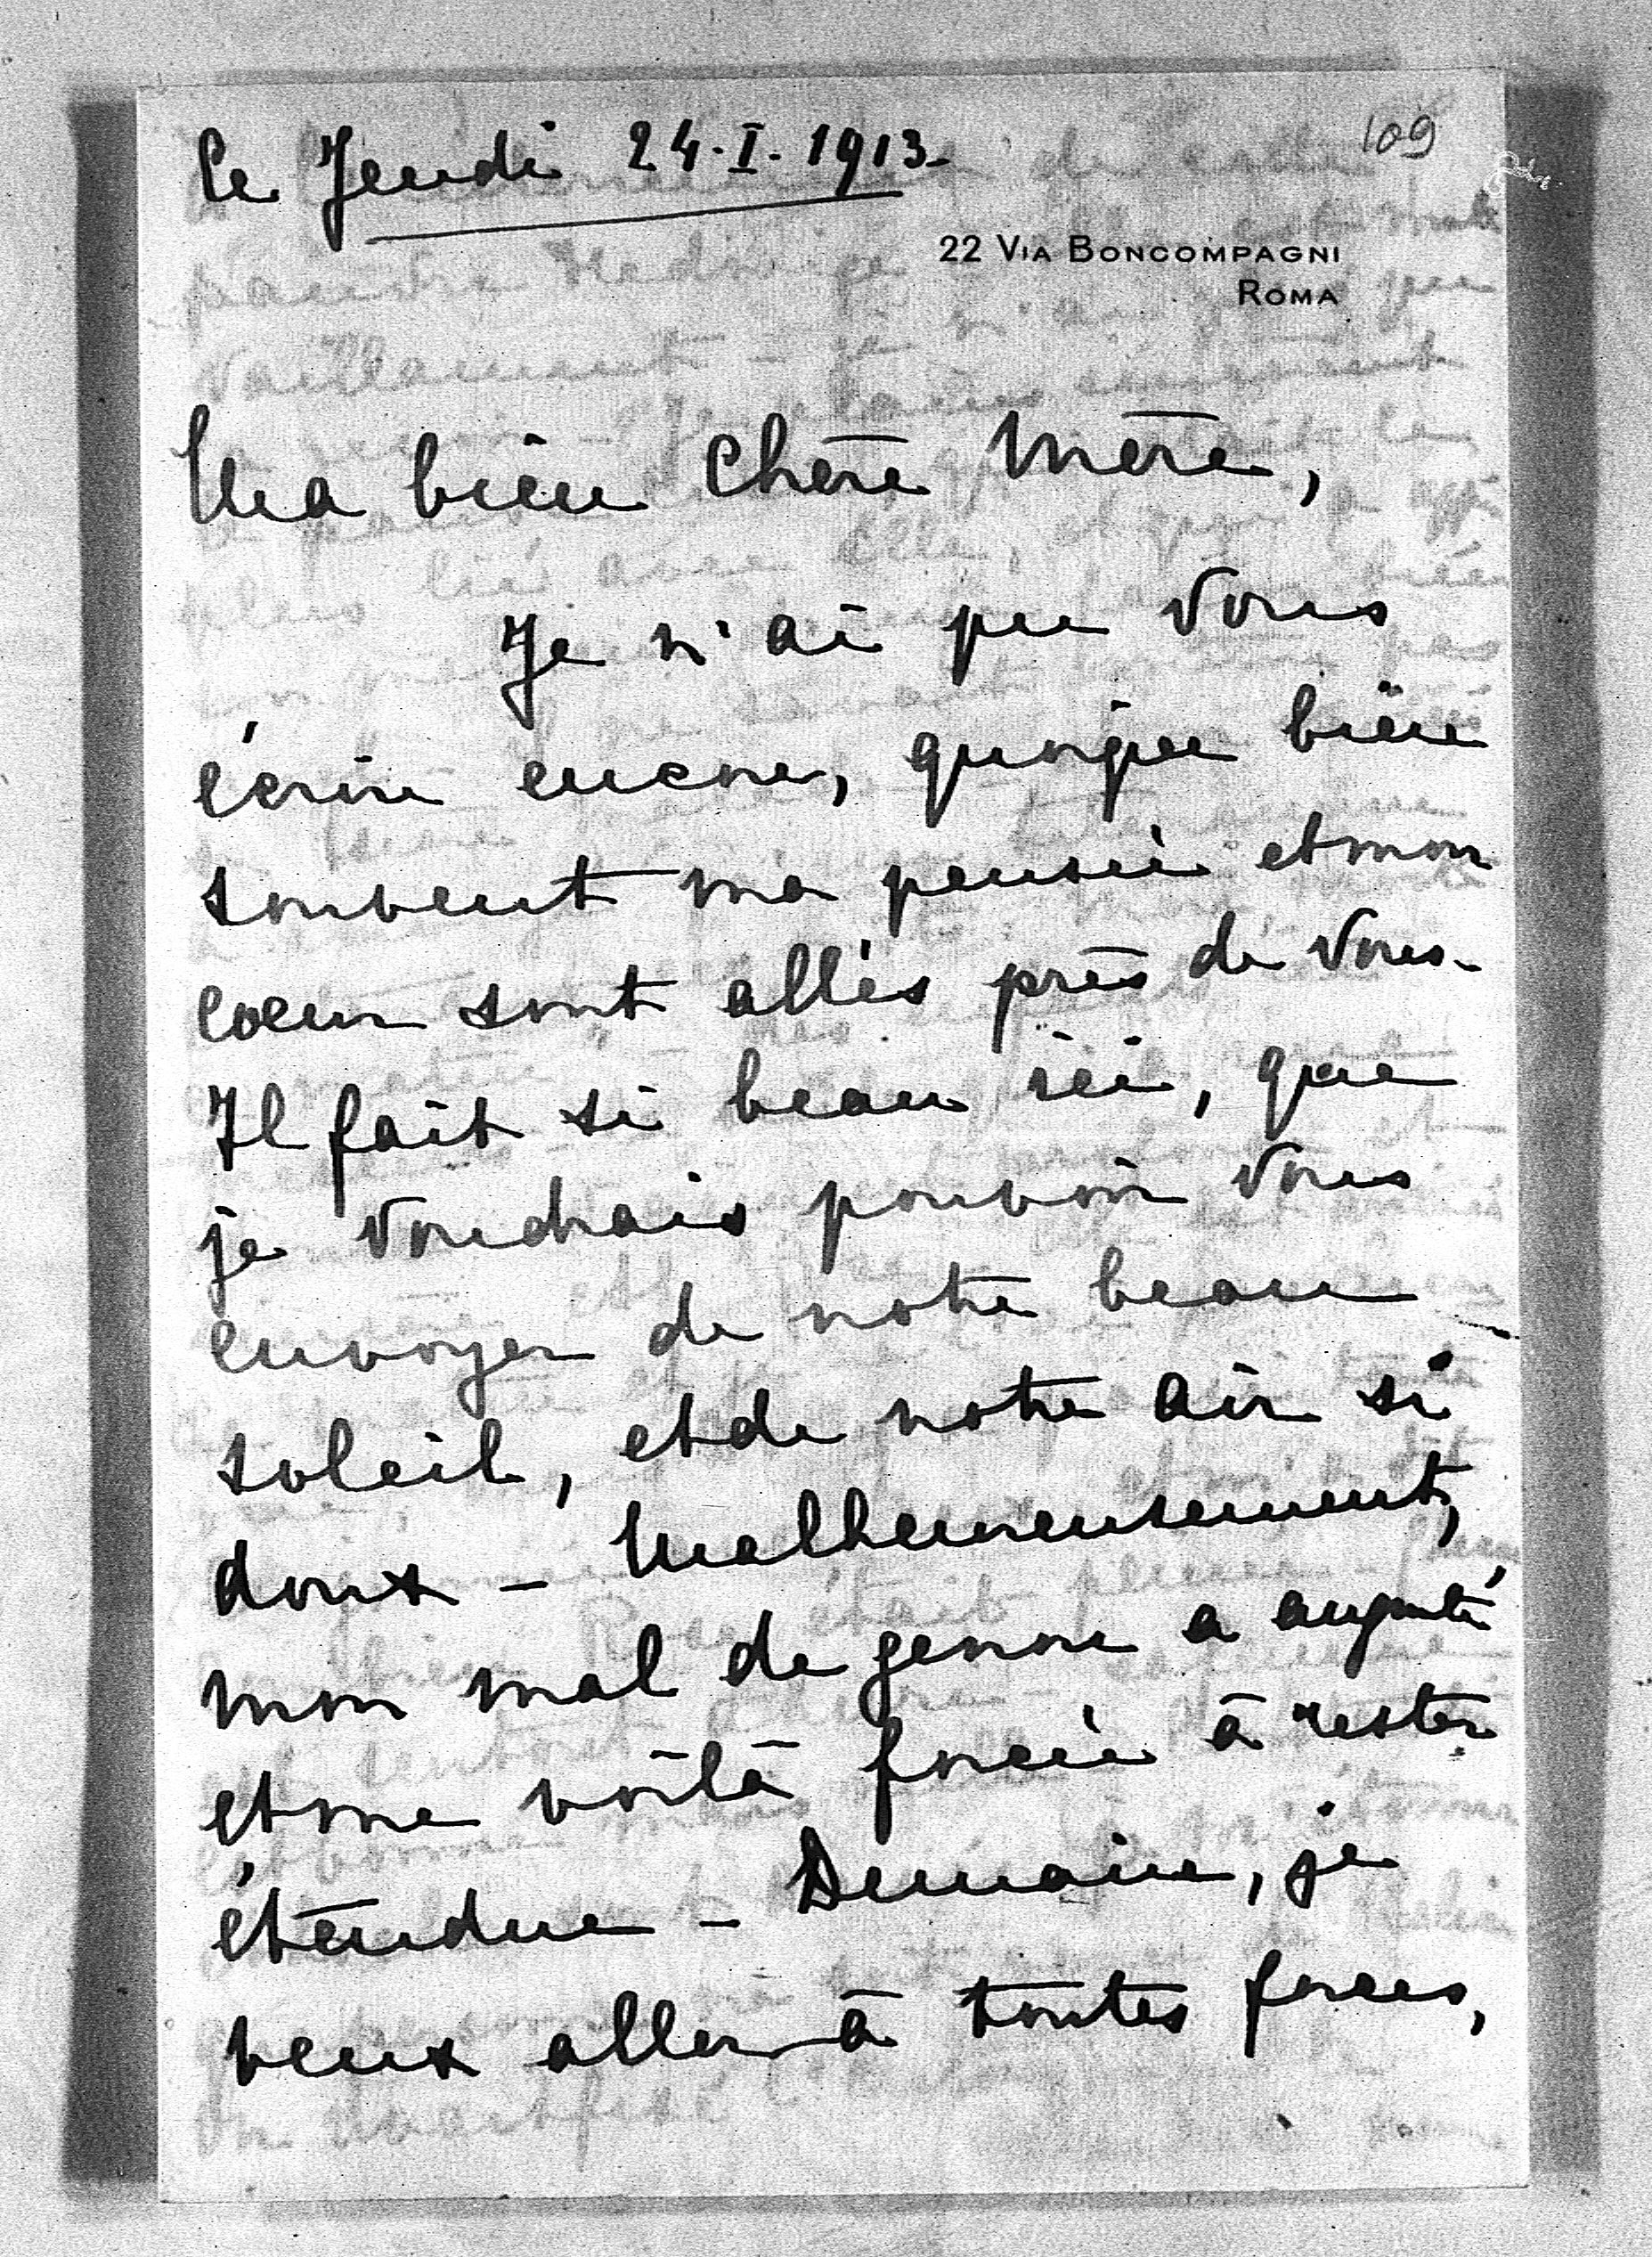 le Jeudi 24·I·1913–
109
22 Via Boncompagni
Roma
Ma bien chère Mère,
Je n'ai pu vous
écrire encore, quoique bien
souvent ma pensée et mon
cœur sont allés près de vous–
Il fait si beau ici, que
je voudrais pouvoir vous
envoyer de notre beau
soleil, et de notre air si
doux – Malheureusement,
mon mal de genou a augmenté
et me voilà forcée à rester
étendue – Demain, je
veux aller à toutes forces,